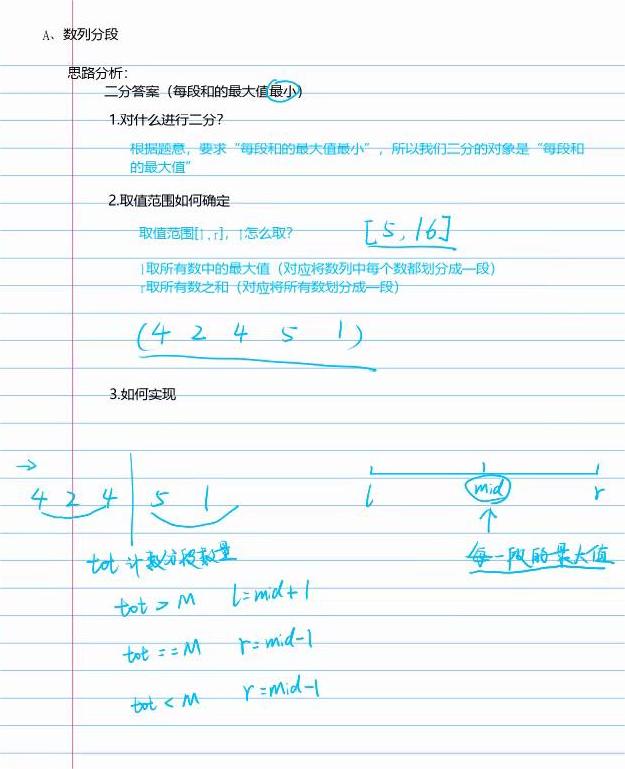 A、数列分段
思路分析：
二分答案（每段和的最大值最小）
1.对什么进行二分？
根据题意，要求“每段和的最大值最小”，所以我们二分的对象是“每段和
的最大值”
2.取值范围如何确定
取值范围[l,r]，l怎么取？ [5,16]
l取所有数中的最大值（对应将数列中每个数都划分成一段）
r取所有数之和（对应将所有数划分成一段）
(4 2 4 5 1)
3.如何实现
→
4 2 4 | 5 1 l mid r
tot 计数分段数量 每一段的最大值
tot > M l=mid+1
tot == M r=mid-1
tot < M r=mid-1